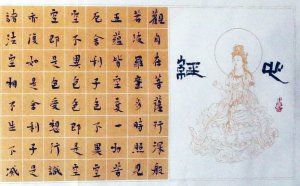 心經
觀自在菩薩行深般
若波羅蜜多時照見
五蘊皆空度一切苦
厄舍利子色不異空
空不異色色即是空
空即是色受想行識
亦復如是舍利子是
諸法空相不生不滅